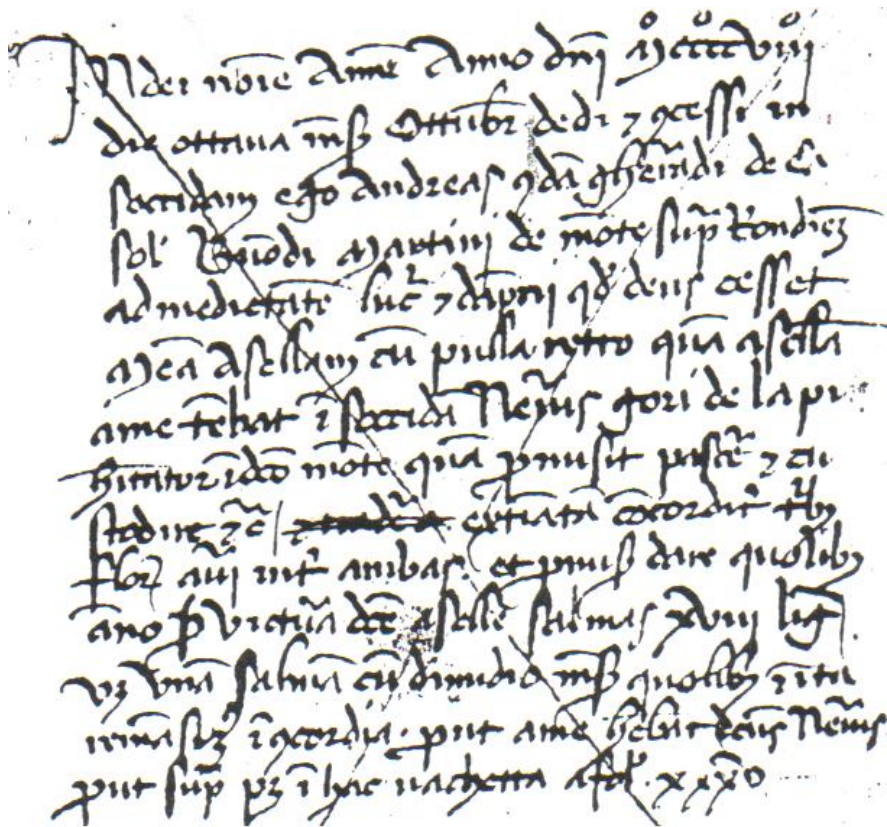 In dei noīe Amē Anno dn̄i Mccccviii
die ottaua mēs Ottūbr dedi ⁊ ꝯcessi in
soccidam ego Andreas ꝙdā gherardi de ca
sol' Martinj de mōte sup
ad medietatē luc' ⁊ dāpnj qd' deus cesset
Meā Asellam cū pulla retro quā asellā
a me tēbat ī soccidā Nerius gori de la pi
h̄itator ī dco mōte quā promisit pascē ⁊ cu
stodire ⁊c extīatā cōcordit'
flor' auri int' ambas et promis dare quolib
āno ꝓ victura dce aselle salmas xviii lig
vꝫ vnā salmā cū dimidio mēs quolib ⁊ īta
remāsim ī ꝯcordia prout a me hēbat dcus Nerius
prout sup pꝫ ī hac vachetta a fol. xxxv